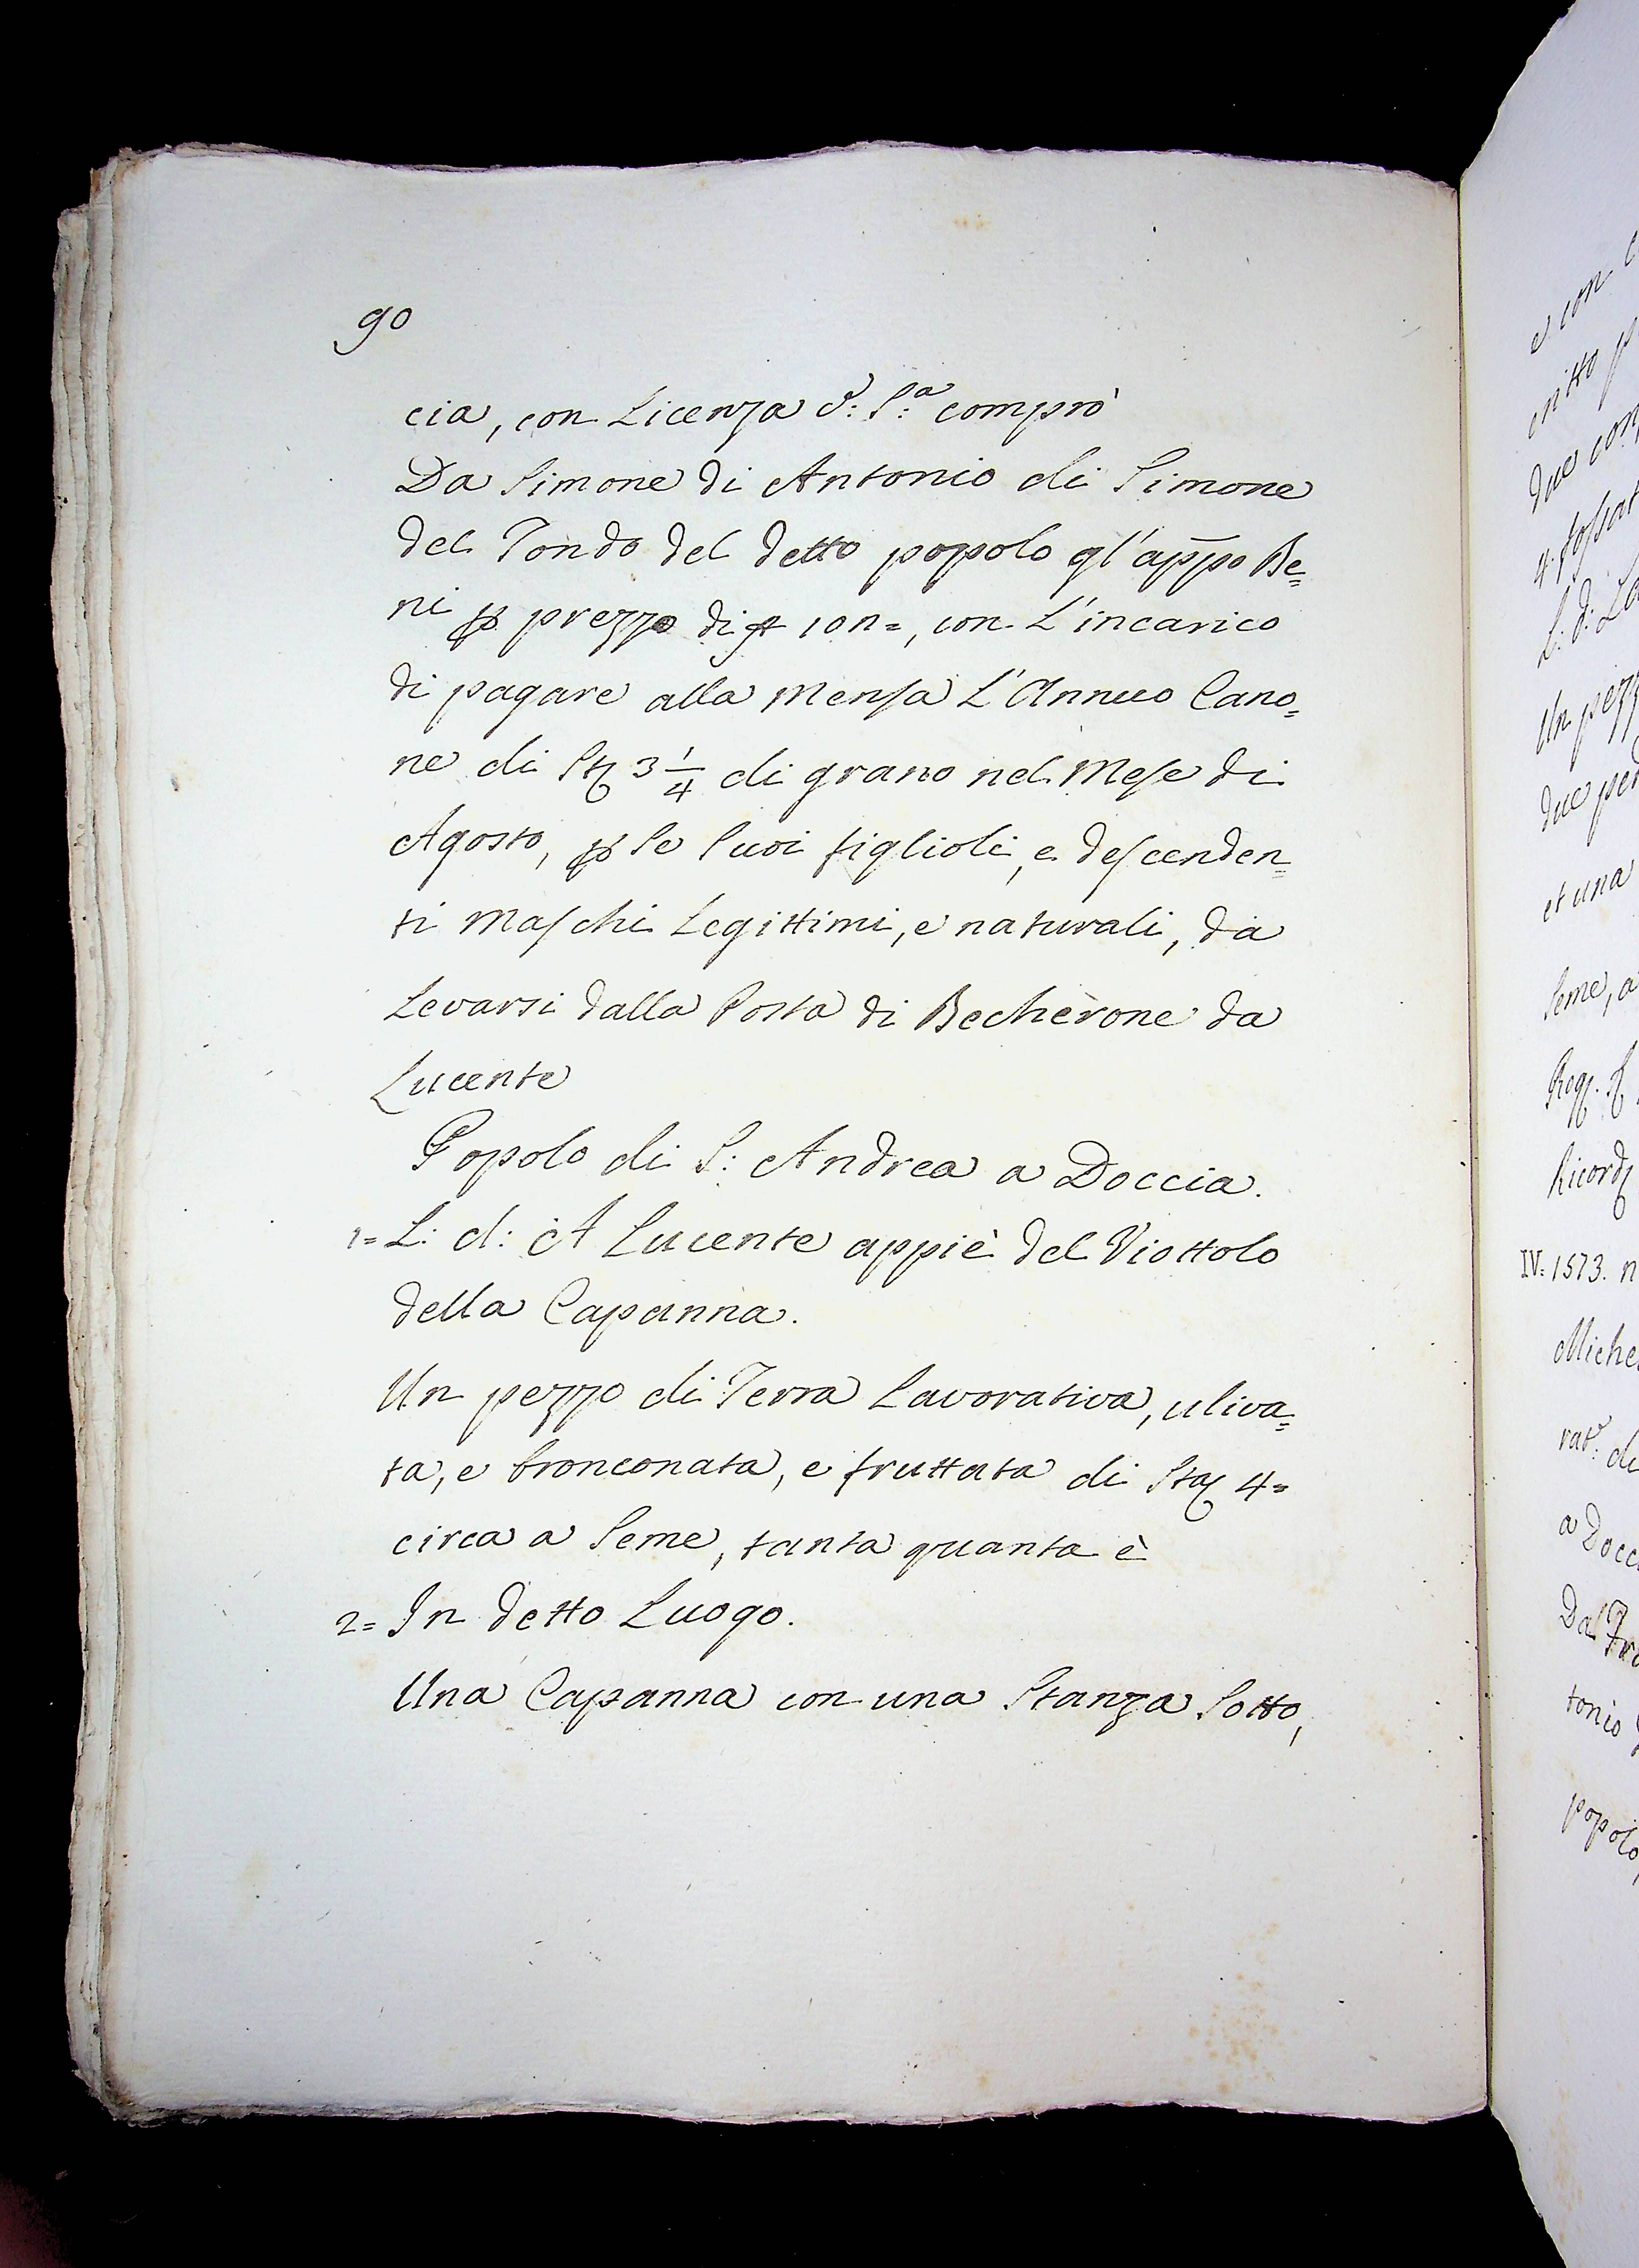 90
cia, con Licenza d: S:a comprò
Da Simone di Antonio di Simone
del Tondo del detto popolo gl'appo Be=
ni p prezzo di 102=, con L'incarico
di pagare alla Mensa L'Annuo Cano=
ne di St 3 1/4 di grano nel Mese di
Agosto, p Se Suoi figlioli, e descenden=
ti Maschi Legittimi, e naturali, da
Levarsi dalla Posta di Becherone da
Lucente
Popolo di S: Andrea a Doccia.
1= L: d: A Lucente appiè del Viottolo
della Capanna.
Un pezzo di Terra Lavorativa, uliva=
ta, e bronconata, e fruttata di Sta 4=
circa a Seme, tanta quanta è
2= In detto Luogo.
Una Capanna con una Stanza Sotto,
e con
due con
L: d: Lo
Un pezz
due
et una
Seme, a
Ricord
IV: 1573. n
Miche
a Docc
tonio
popolo,